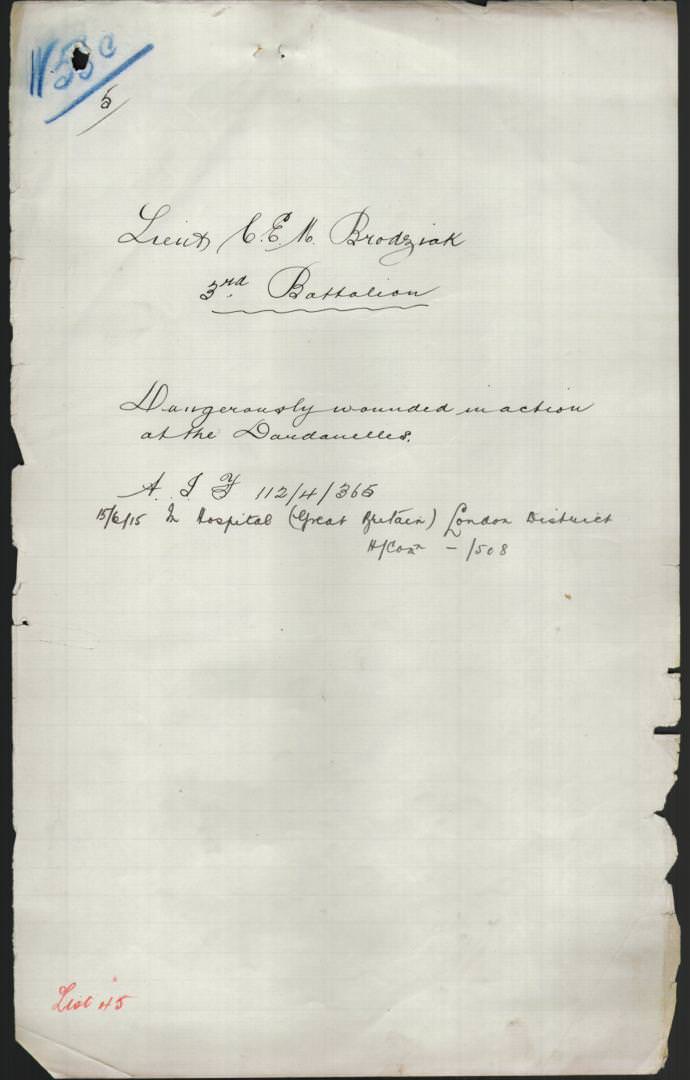 W 53c
5
Lieut C.E.M. Brodziak
3rd. Battalion
Dangerously wounded in action
at the Dardanelles.
A. I F 112/4/365
15/6/15 In Hospital (Great Britain) London District
H/Comr - 1508
List 45